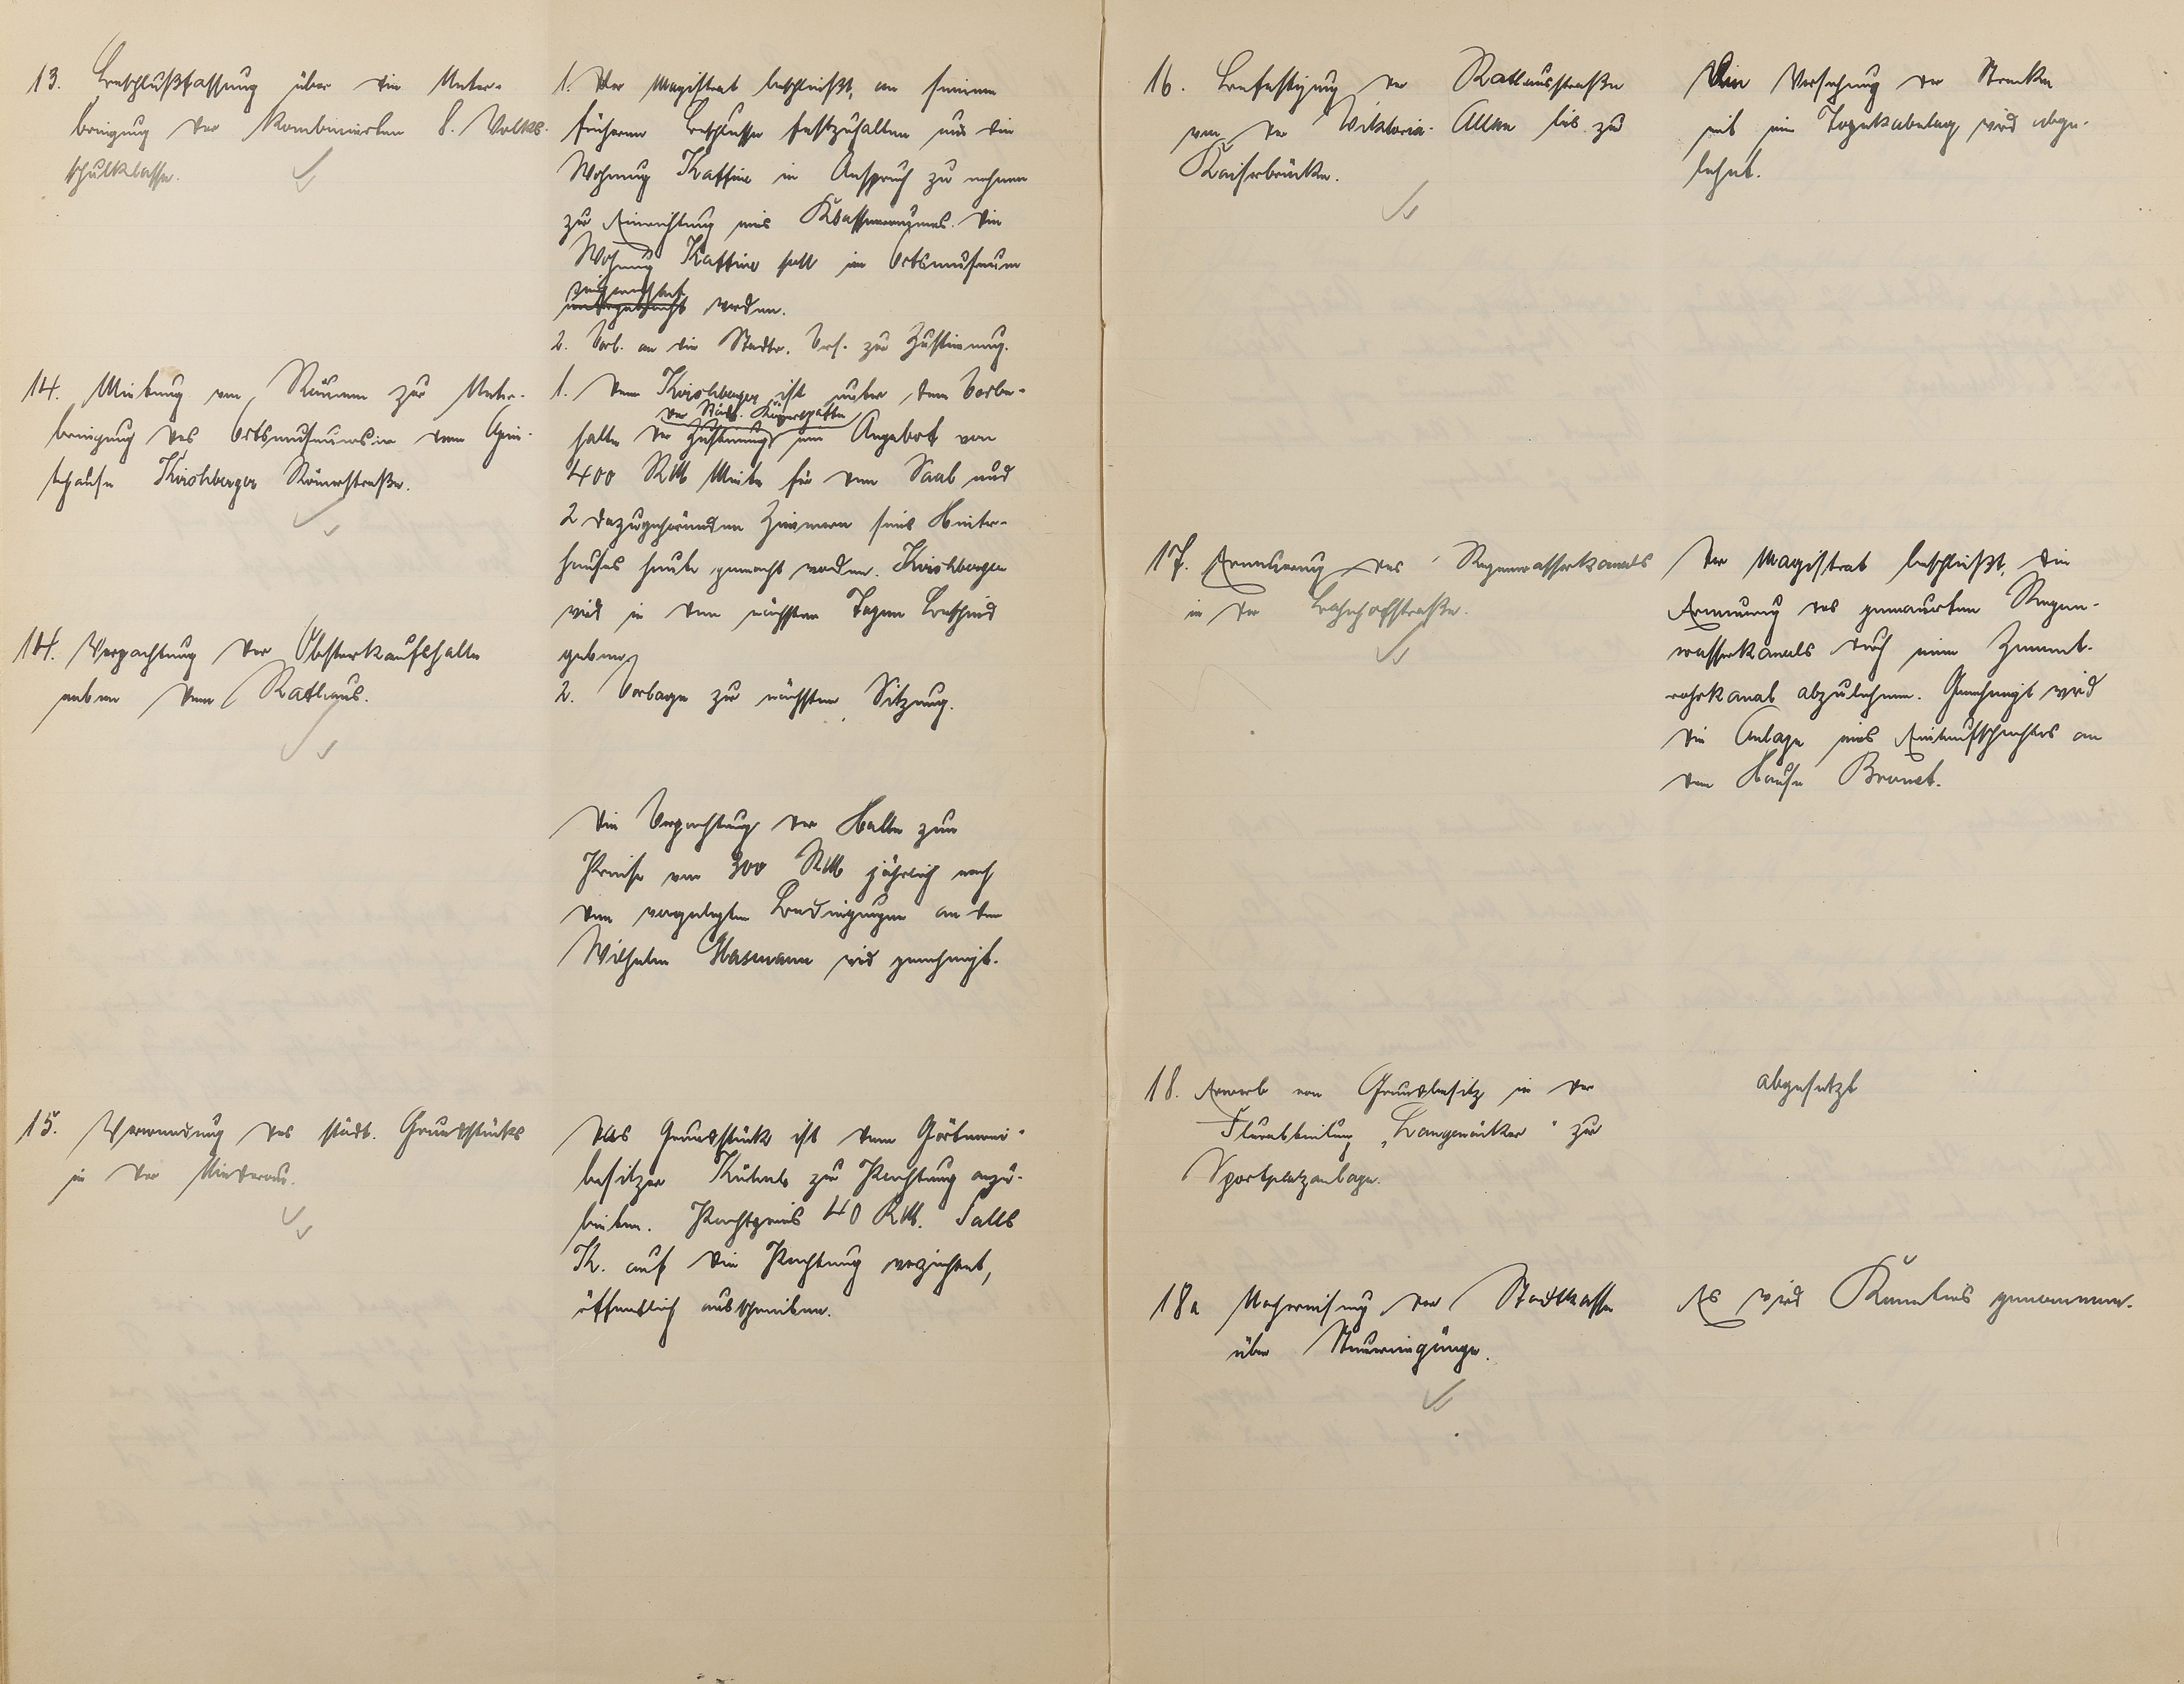 13. Beschlußfassung über die Unter-
bringung der kombinierten 8. Volks-
schulklasse.
1. Der Magistrat beschließt, an seinem
früheren Beschlusse festzuhalten und die
Wohnung Kattine in Anspruch zu nehmen
zur Einrichtung eines Klassenraumes. Die
Wohnung Kattine soll im Ortsmuseum
eingerichtet
untergebracht werden.
2. Vorl. an die Stadtv. Vers. zur Zustimmung.
14. Mietung von Räumen zur Unter-
bringung des Ortsmuseums in dem Gein-
schause Kirschberger Römerstraße.
1. Dem Kirschberger ist unter dem Vorbe-
der Städt. Körperschaften
halte der Zustimmung ein Angebot von
400 RM Miete für den Saal und
2 dazugehörenden Zimmern seines Hinter-
hauses heute gemacht worden. Kirschberger
wird in den nächsten Tagen Bescheid
geben.
2. Vorlage zur nächsten Sitzung.
14. Verpachtung der Obstverkaufshalle
neben dem Rathaus.
Die Verpachtung der Halle zum
Preise von 300 RM jährlich nach
den vorgelegten Bedingungen an den
Wilhelm Glasmann wird genehmigt.
15. Verwendung des städt. Grundstücks
in der Niederau.
Das Grundstück ist dem Gärtnerei-
besitzer Kühnle zur Pachtung anzu-
bieten. Pachtpreis 40 RM. Falls
K. auf die Pachtung verzichtet,
öffentlich ausschreiben.
16. Befestigung der Rathausstraße
von der Viktoria-Allee bis zur
Kaiserbrücke.
Die Versehung der Strecke
mit ein Topekabelag wird abge-
lehnt.
17. Erneuerung des Regenwasserkanals
in der Bahnhofstraße.
Der Magistrat beschließt, die
Erneuerung des gemauerten Regen-
wasserkanals durch einen Zement-
rohrkanal abzulehnen. Genehmigt wird
die Anlage eines Einlaufschachtes an
dem Hause Braunet.
18. Erwerb von Grundbesitz in der
Flurabteilung „Langenäcker“ zur
Sportplatzanlage.
abgesetzt
18a Nachweisung der Stadtkasse
über Steuereingänge.
Es wird Kenntnis genommen.